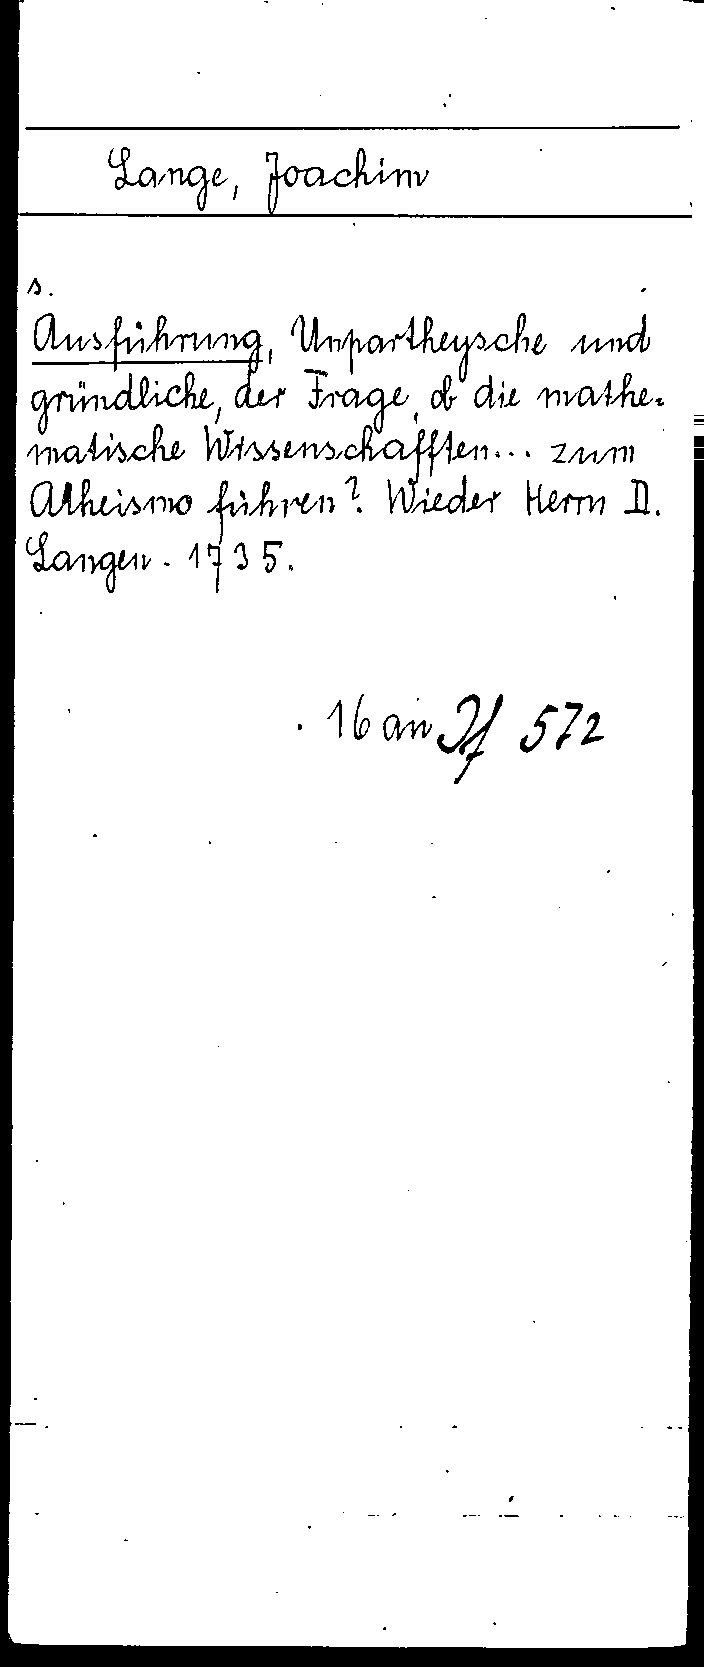 Lange, Joachim
s.
Ausführung, Unpartheysche und
gründliche, der Frage, ob die mathe-
matische Wissenschafften... zum
Atheismo führen? Wieder Herrn D.
Langen. 1735.
16 an If 572